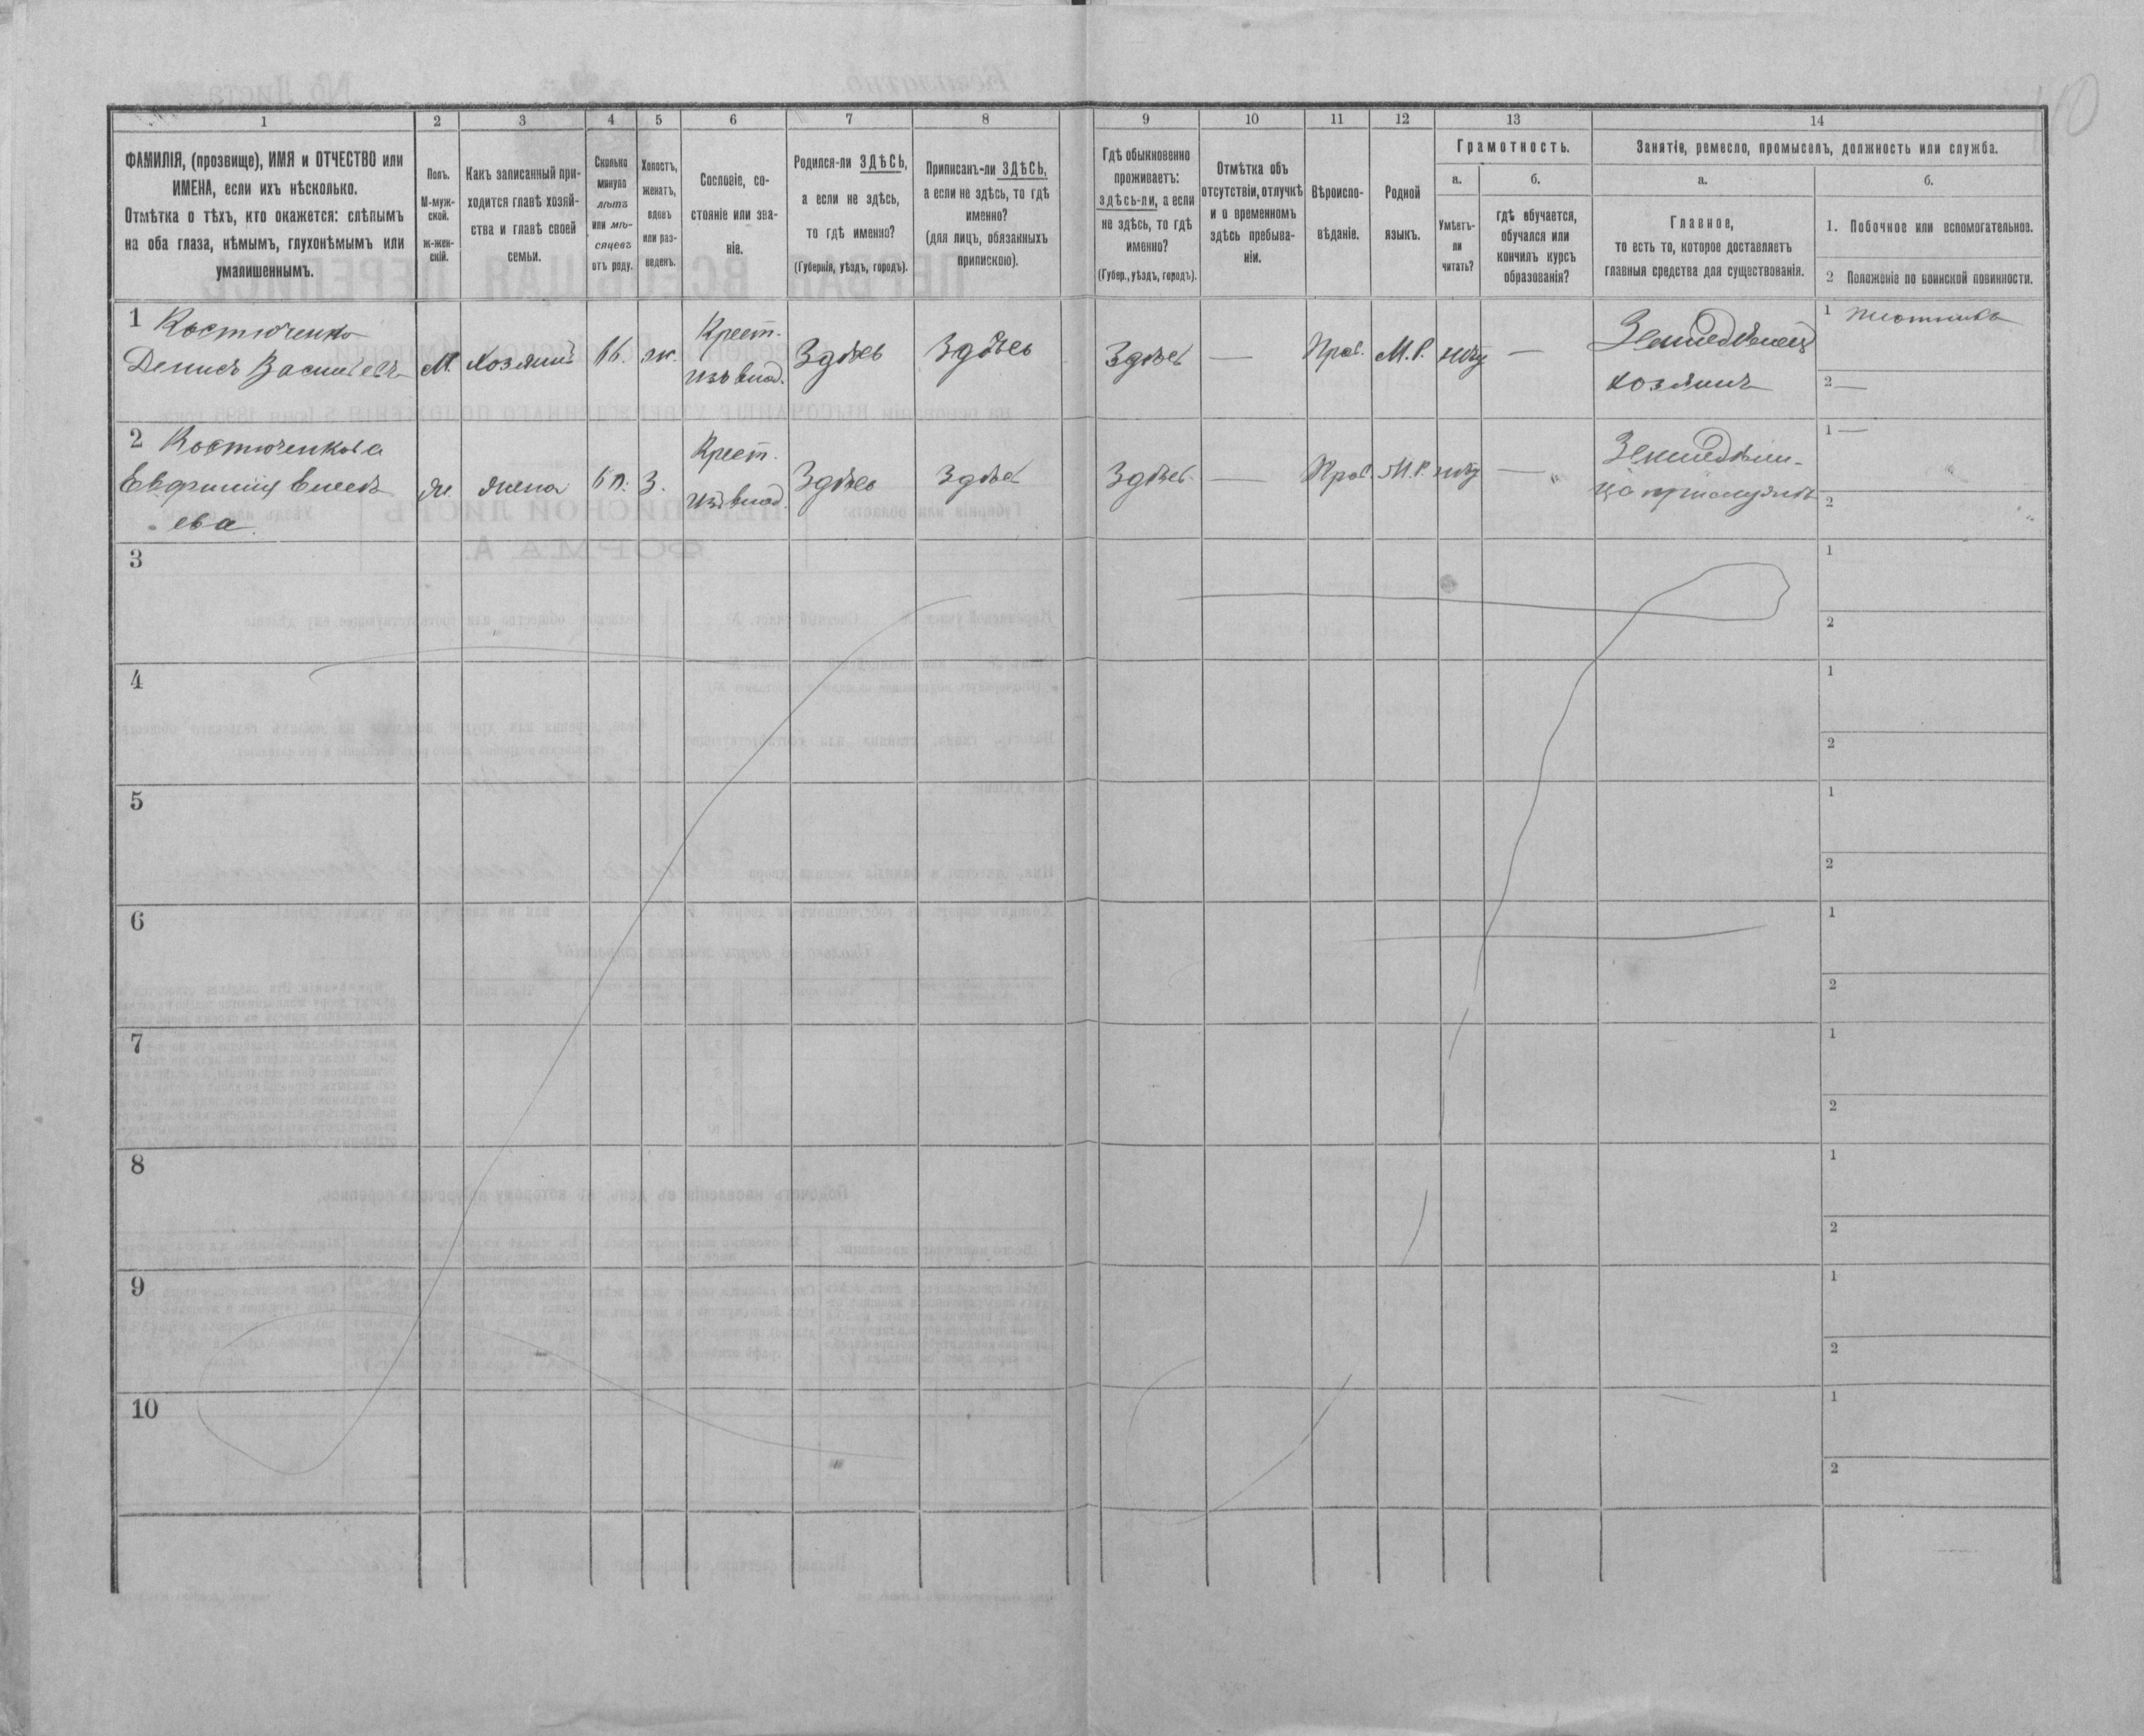 1 2 3 4 5 6 7 8 9 10 11 12 13 14
ФАМИЛІЯ, (прозвище), ИМЯ и ОТЧЕСТВО или
ИМЕНА, если ихъ нѣсколько.
Отмѣтка о тѣхъ, кто окажется: слѣпымъ
на оба глаза, нѣмымъ, глухонѣмымъ или
умалишеннымъ.
Полъ.
М-муж-
ской.
ж-жен-
скій.
Какъ записанный при-
ходится главѣ хозяй-
ства и главѣ своей
семьи.
Сколько
минуло
лѣтъ
или мѣ-
сяцевъ
отъ роду.
Холостъ,
женатъ,
вдовъ
или раз-
веденъ.
Сословіе, со-
стояніе или зва-
ніе.
Родился-ли ЗДѢСЬ,
а если не здѣсь,
то гдѣ именно?
(Губернія, уѣздъ, городъ).
Приписанъ-ли ЗДѢСЬ,
а если не здѣсь, то гдѣ
именно?
(для лицъ, обязанныхъ
припискою).
Гдѣ обыкновенно
проживаетъ:
здѣсь-ли, а если
не здѣсь, то гдѣ
именно?
(Губер., уѣздъ, городъ).
Отмѣтка объ
отсутствіи, отлучкѣ
и о временномъ
здѣсь пребыва-
ніи.
Вѣроиспо-
вѣданіе.
Родной
языкъ.
Грамотность.
а.
Умѣетъ-
ли
читать?
б.
гдѣ обучается,
обучался или
кончилъ курсъ
образованія?
Занятіе, ремесло, промыселъ, должность или служба.
а.
Главное,
то есть то, которое доставляетъ
главныя средства для существованія.
б.
1. Побочное или вспомогательное.
2 Положеніе по воинской повинности.
1 Костюченко
Денисъ Васильевъ
М. Хозяинъ 66. ж. Крест.
изъ влад.
Здѣсь Здѣсь Здѣсь — Прав. М.Р. нѣтъ —
Земледѣлецъ
хозяинъ
1 плотникъ
2 —
2 Костюченкова
Ева
М.Р. нѣтъ —
ж. жена
3.
Крест.
изъ влад.
Здѣсь Здѣсь Здѣсь — Прав.
1 —
2
3 1
2
4 1
2
5 1
2
6 1
2
7 1
2
8 1
2
9 1
2
10 1
2